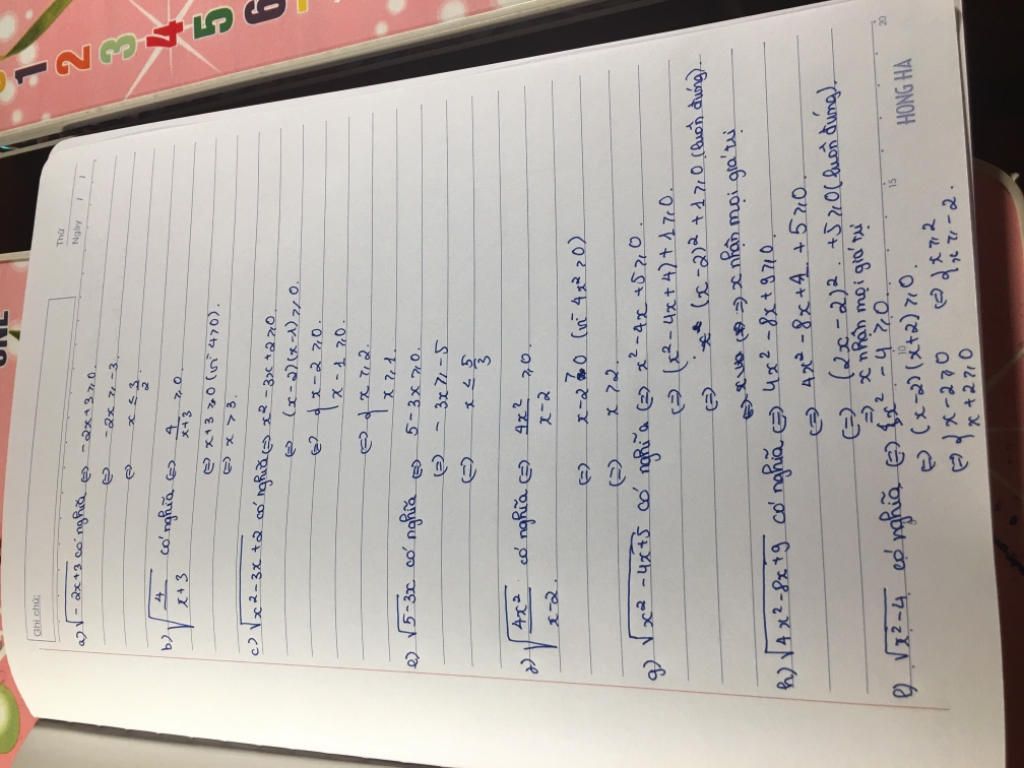 1 2 3 4 5 6
Ghi chú:
Thứ
Ngày / /
a) √(-2x+3) có nghĩa (=) -2x+3 ≥ 0.
(=) -2x ≥ -3
(=) x ≤ 3/2
b) √(4/(x+3)) có nghĩa (=) 4/(x+3) ≥ 0.
(=) x+3 ≥ 0 (vì 4 ≥ 0).
(=) x > 3.
c) √(x²-3x+2) có nghĩa (=) x²-3x+2 ≥ 0
(=) (x-2)(x-1) ≥ 0.
(=) { x-2 ≥ 0.
x-1 ≥ 0.
(=) { x ≥ 2.
x ≥ 1.
e) √(5-3x) có nghĩa (=) 5-3x ≥ 0.
(=) -3x ≥ -5
(=) x ≤ 5/3
d) √(4x²/(x-2)) có nghĩa (=) 4x²/(x-2) ≥ 0.
(=) x-2 > 0 (vì 4x² ≥ 0)
(=) x > 2.
g) √(x²-4x+5) có nghĩa (=) x²-4x+5 ≥ 0.
(=) (x²-4x+4)+1 ≥ 0.
(=) (x-2)²+1 ≥ 0 (luôn đúng).
=) x nhận mọi giá trị
h) √(4x²-8x+9) có nghĩa (=) 4x²-8x+9 ≥ 0.
(=) 4x²-8x+4+5 ≥ 0.
(=) (2x-2)²+5 ≥ 0 (luôn đúng).
=) x nhận mọi giá trị
f) √(x²-4) có nghĩa (=) x²-4 ≥ 0
(=) (x-2)(x+2) ≥ 0.
(=) { x-2 ≥ 0 (=) { x ≥ 2
x+2 ≥ 0 x ≥ -2.
10 15 20
HONG HA